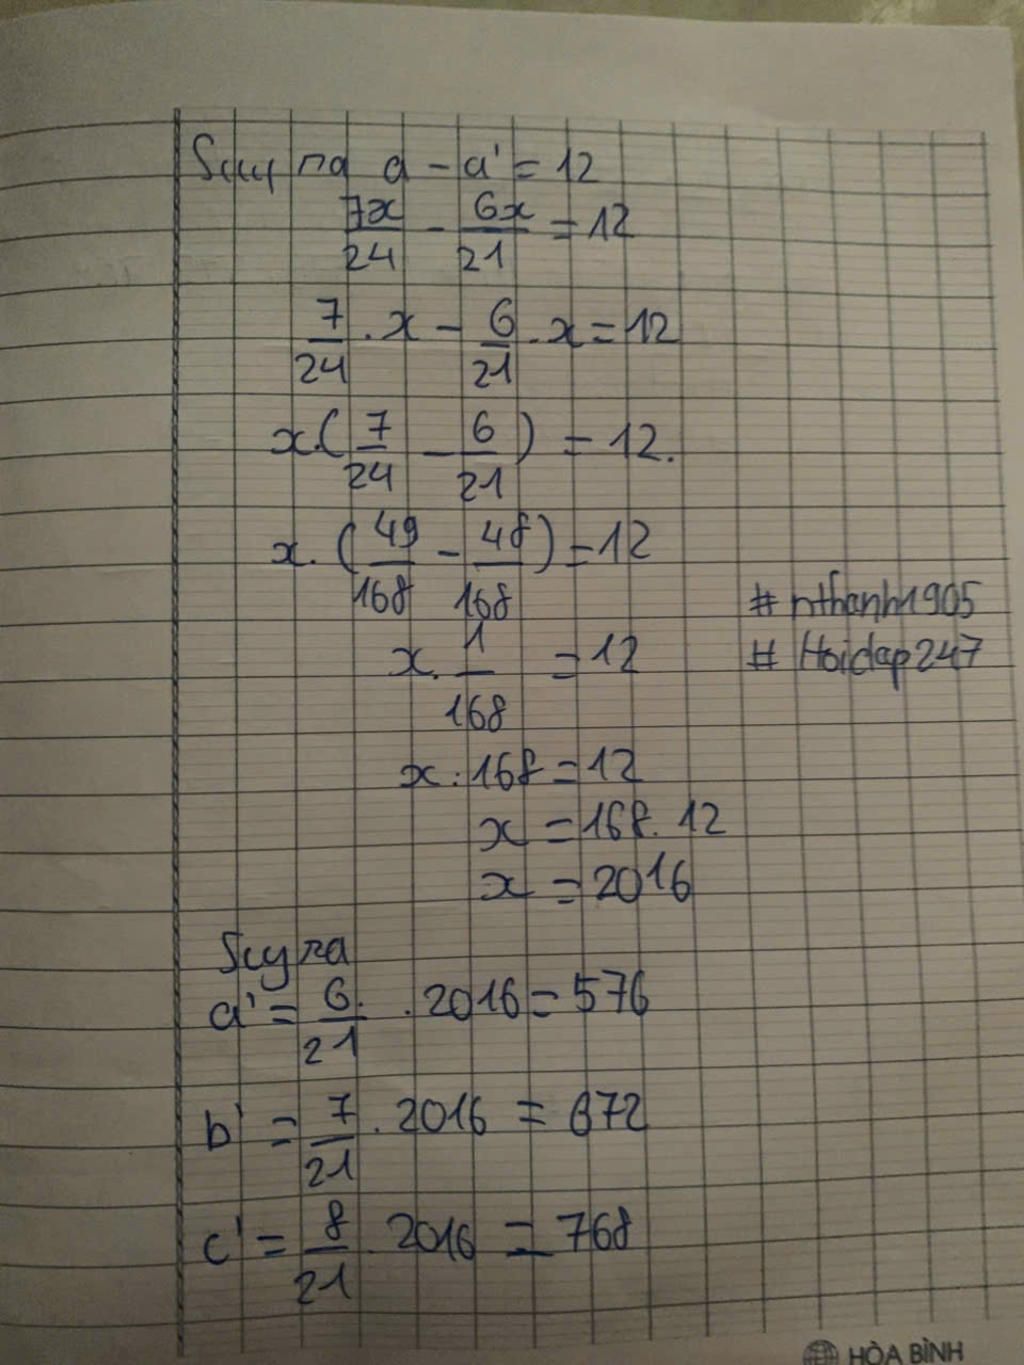 Suy ra a - a' = 12
7x/24 - 6x/21 = 12
7/24 . x - 6/21 . x = 12
x.(7/24 - 6/21) = 12.
x.(49/168 - 48/168) = 12
#nthanh1905
x. 1/168 = 12
#Hoidap247
x : 168 = 12
x = 168. 12
x = 2016
Suy ra
a' = 6/21 . 2016 = 576
b' = 7/21 . 2016 = 672
c' = 8/21 . 2016 = 768
HÒA BÌNH